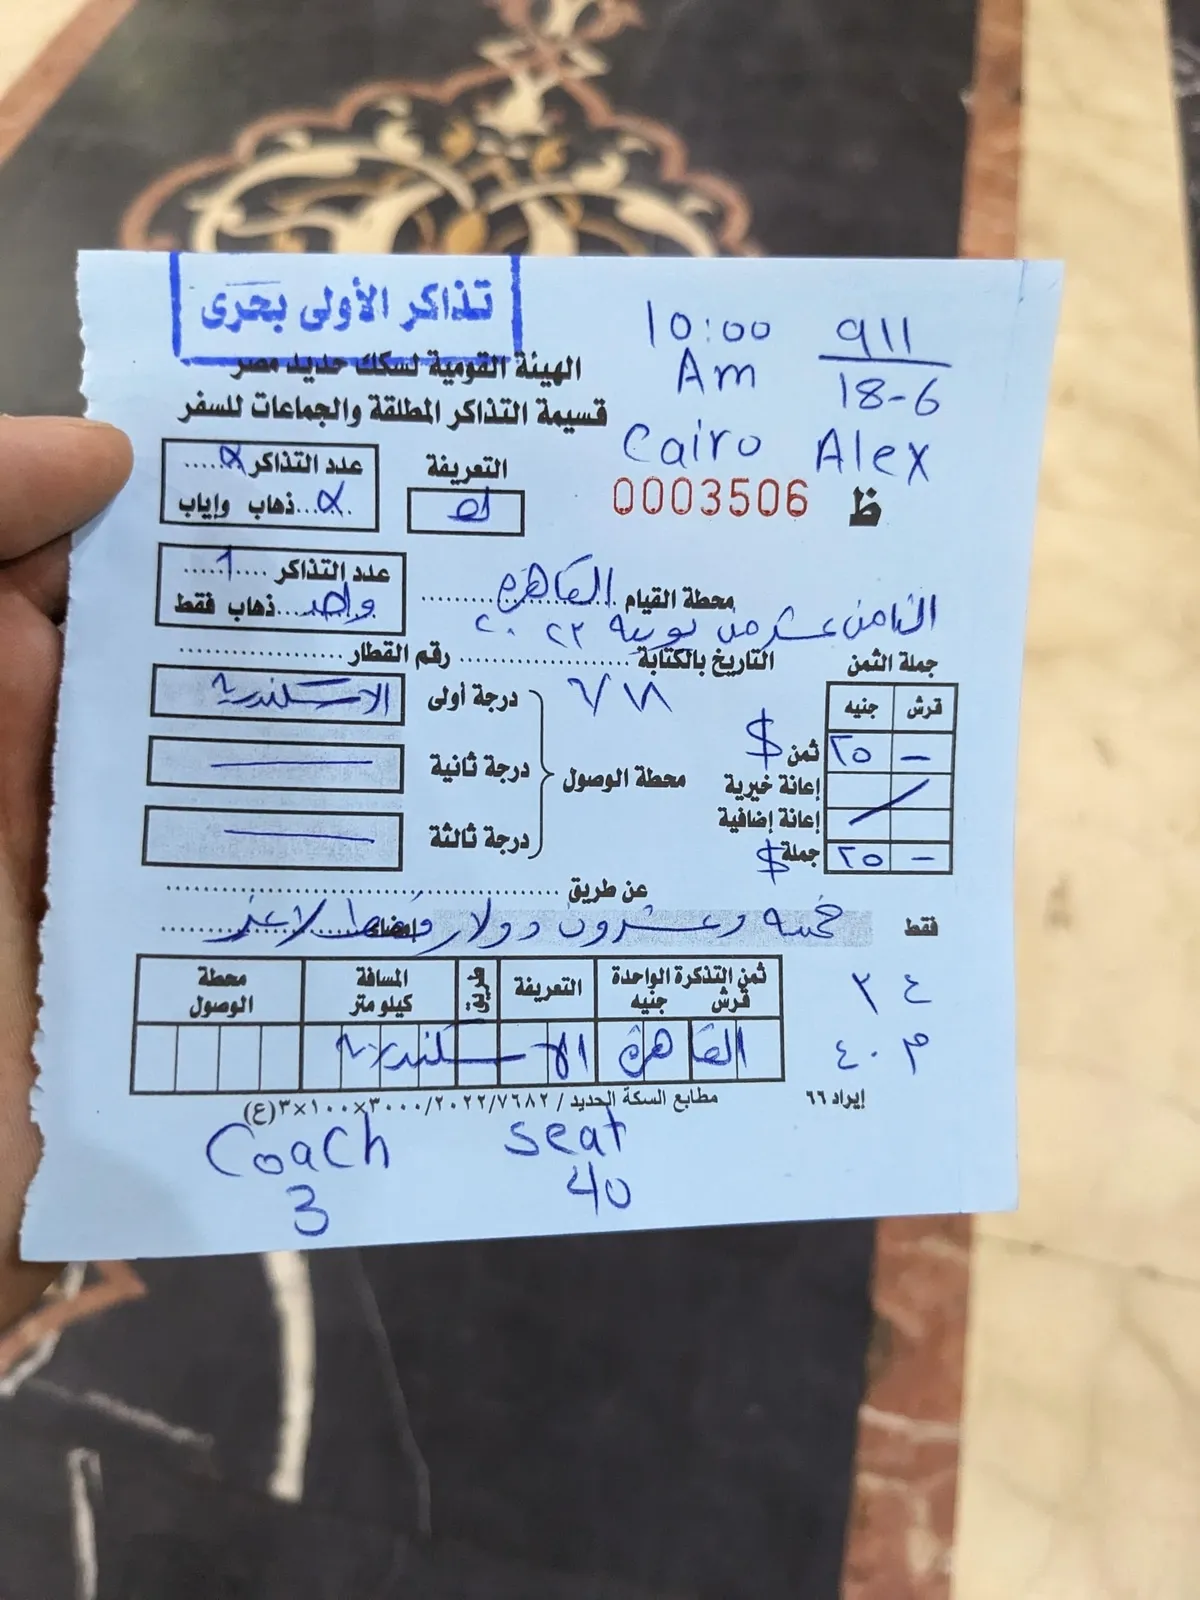 تذاكر الأولى بحرى
10:00 Am
911
18-6
Cairo Alex
الهيئة القومية لسكك حديد مصر
قسيمة التذاكر المطلقة والجماعات للسفر
0003506 ظ
التعريفة
عدد التذاكر
ذهاب وإياب
عدد التذاكر 1
واحد ذهاب فقط
محطة القيام القاهرة
الثامن عشر من يونيه ٢٠٢٢
التاريخ بالكتابة
رقم القطار
٦/١٨
جملة الثمن
قرش جنيه
ثمن $ ٢٥ –
إعانة خيرية
إعانة إضافية
جملة $ ٢٥ –
محطة الوصول
درجة أولى الاسكندرية
درجة ثانية
درجة ثالثة
عن طريق
فقط خمسة وعشرون دولار فقط لاغير
إمضاء
ثمن التذكرة الواحدة
قرش جنيه
التعريفة
طريق
المسافة كيلو متر
محطة الوصول
القاهرة الاسكندرية
ع ٣
م ٤٠
إيراد ٦٦
مطابع السكة الحديد / ٧٦٨٢/٢٠٢٢/٣٠٠٠×١٠٠×٣ (ع)
Coach 3
seat 40